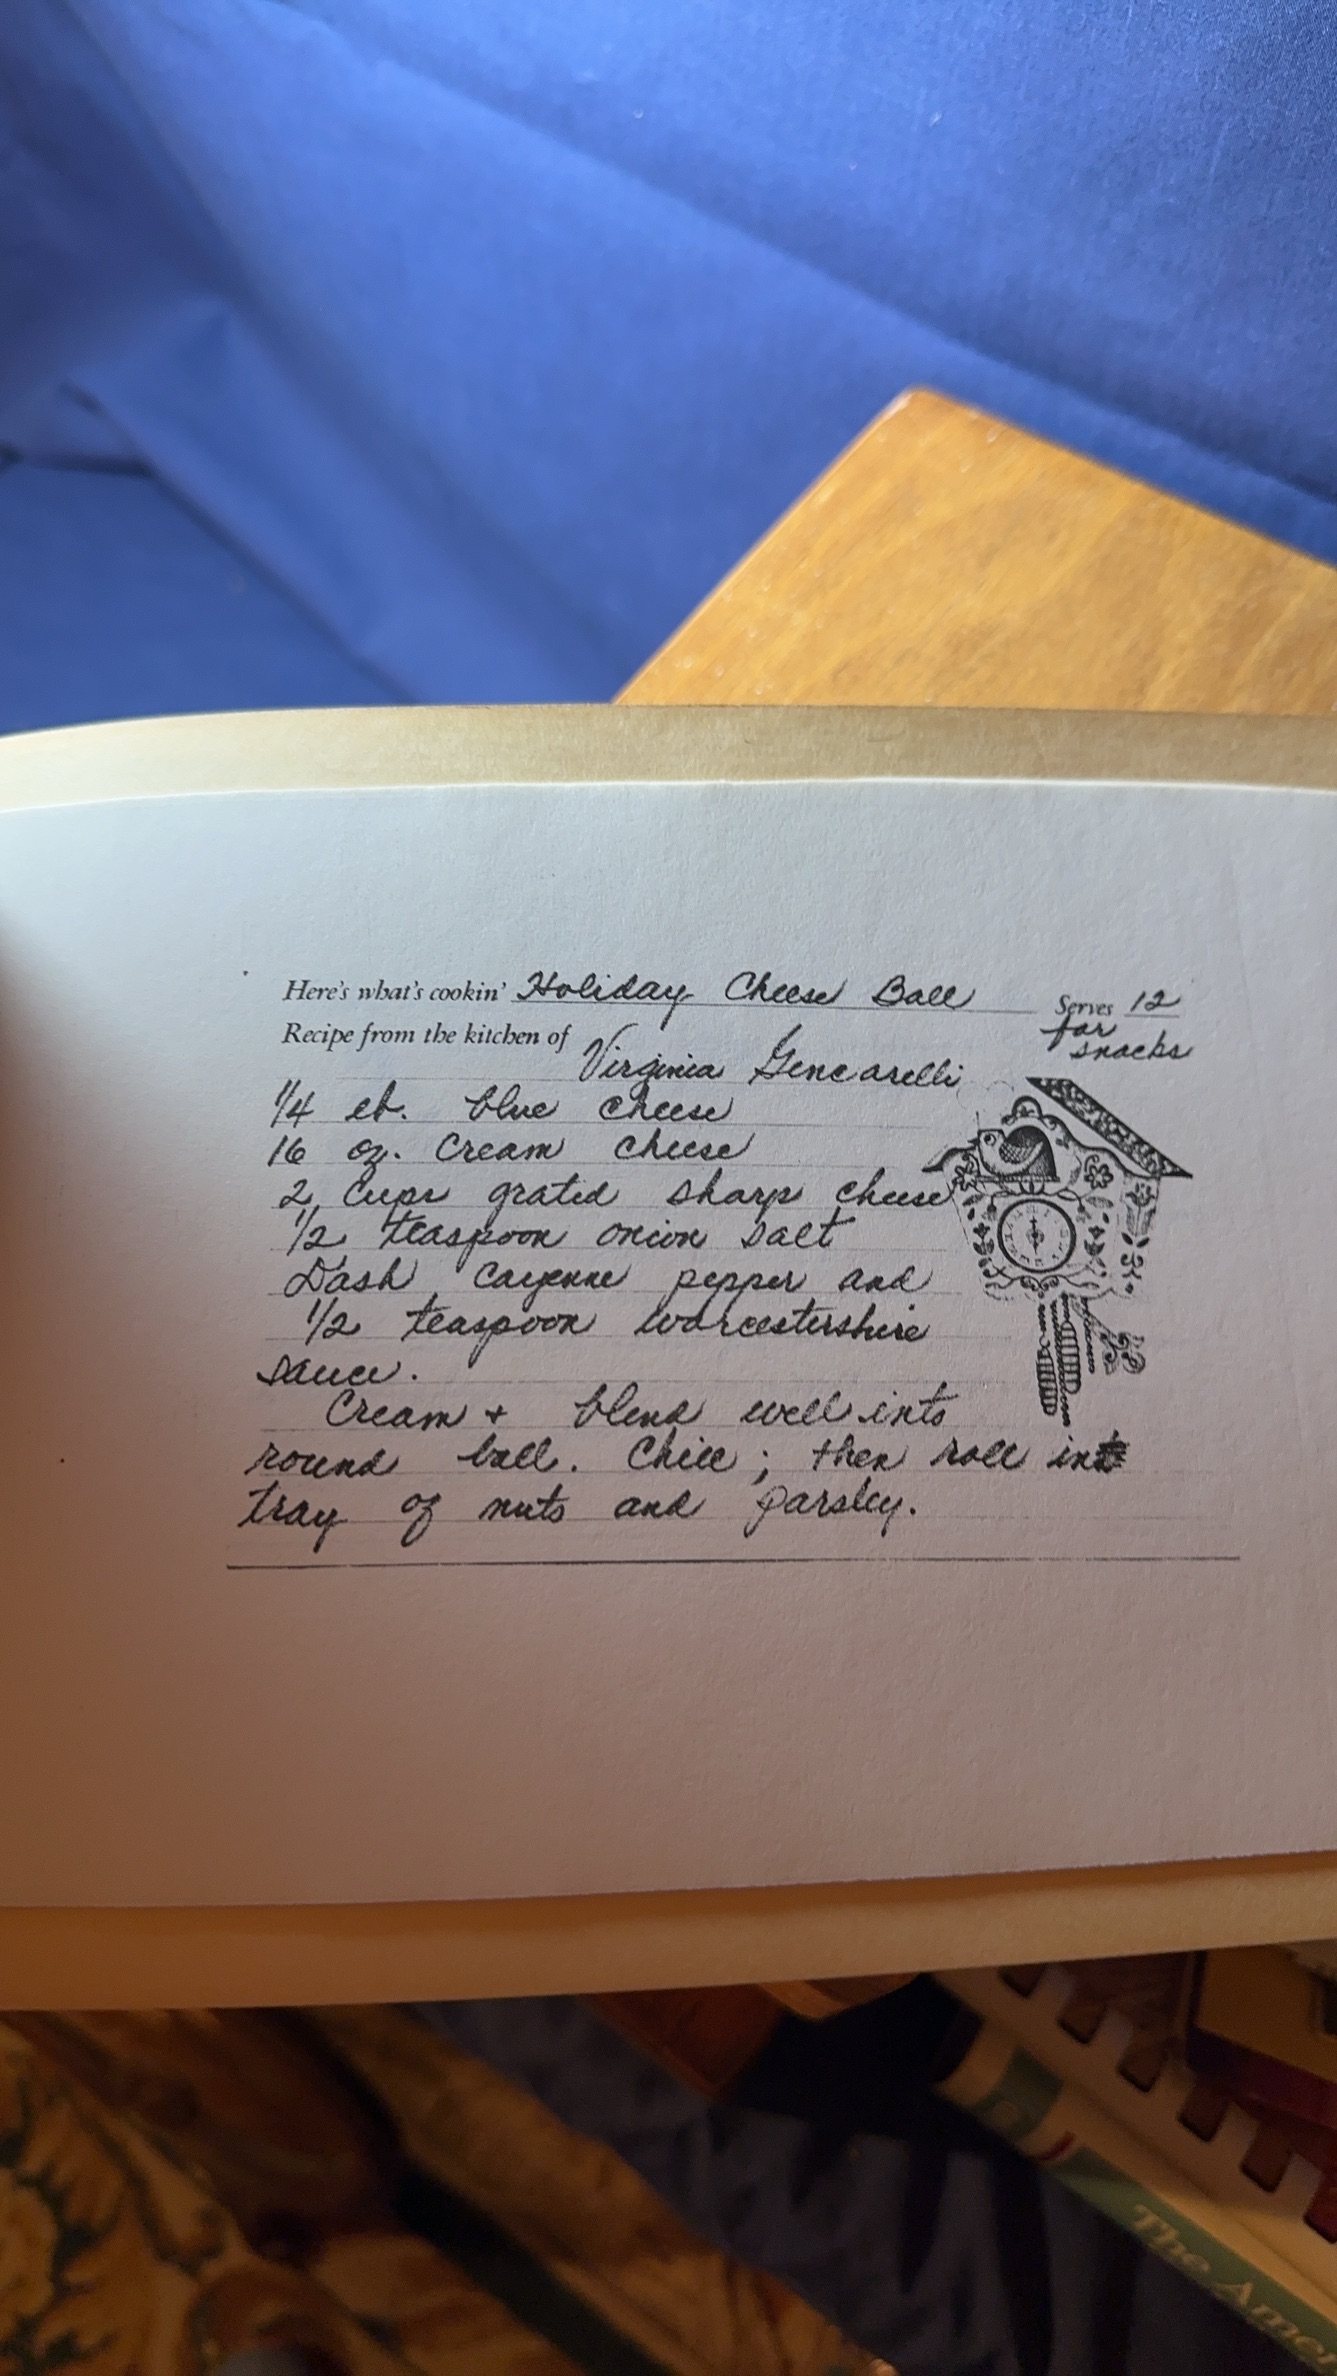 Here's what's cookin' Holiday Cheese Ball Serves 12
for
snacks
Recipe from the kitchen of Virginia Gencarelli
1/4 lb. blue cheese
16 oz. Cream cheese
2 Cups grated sharp cheese
1/2 teaspoon onion salt
Dash cayenne pepper and
1/2 teaspoon worcestershire
sauce.
Cream + blend well into
round ball. Chill; then roll in
tray of nuts and parsley.
The Amer